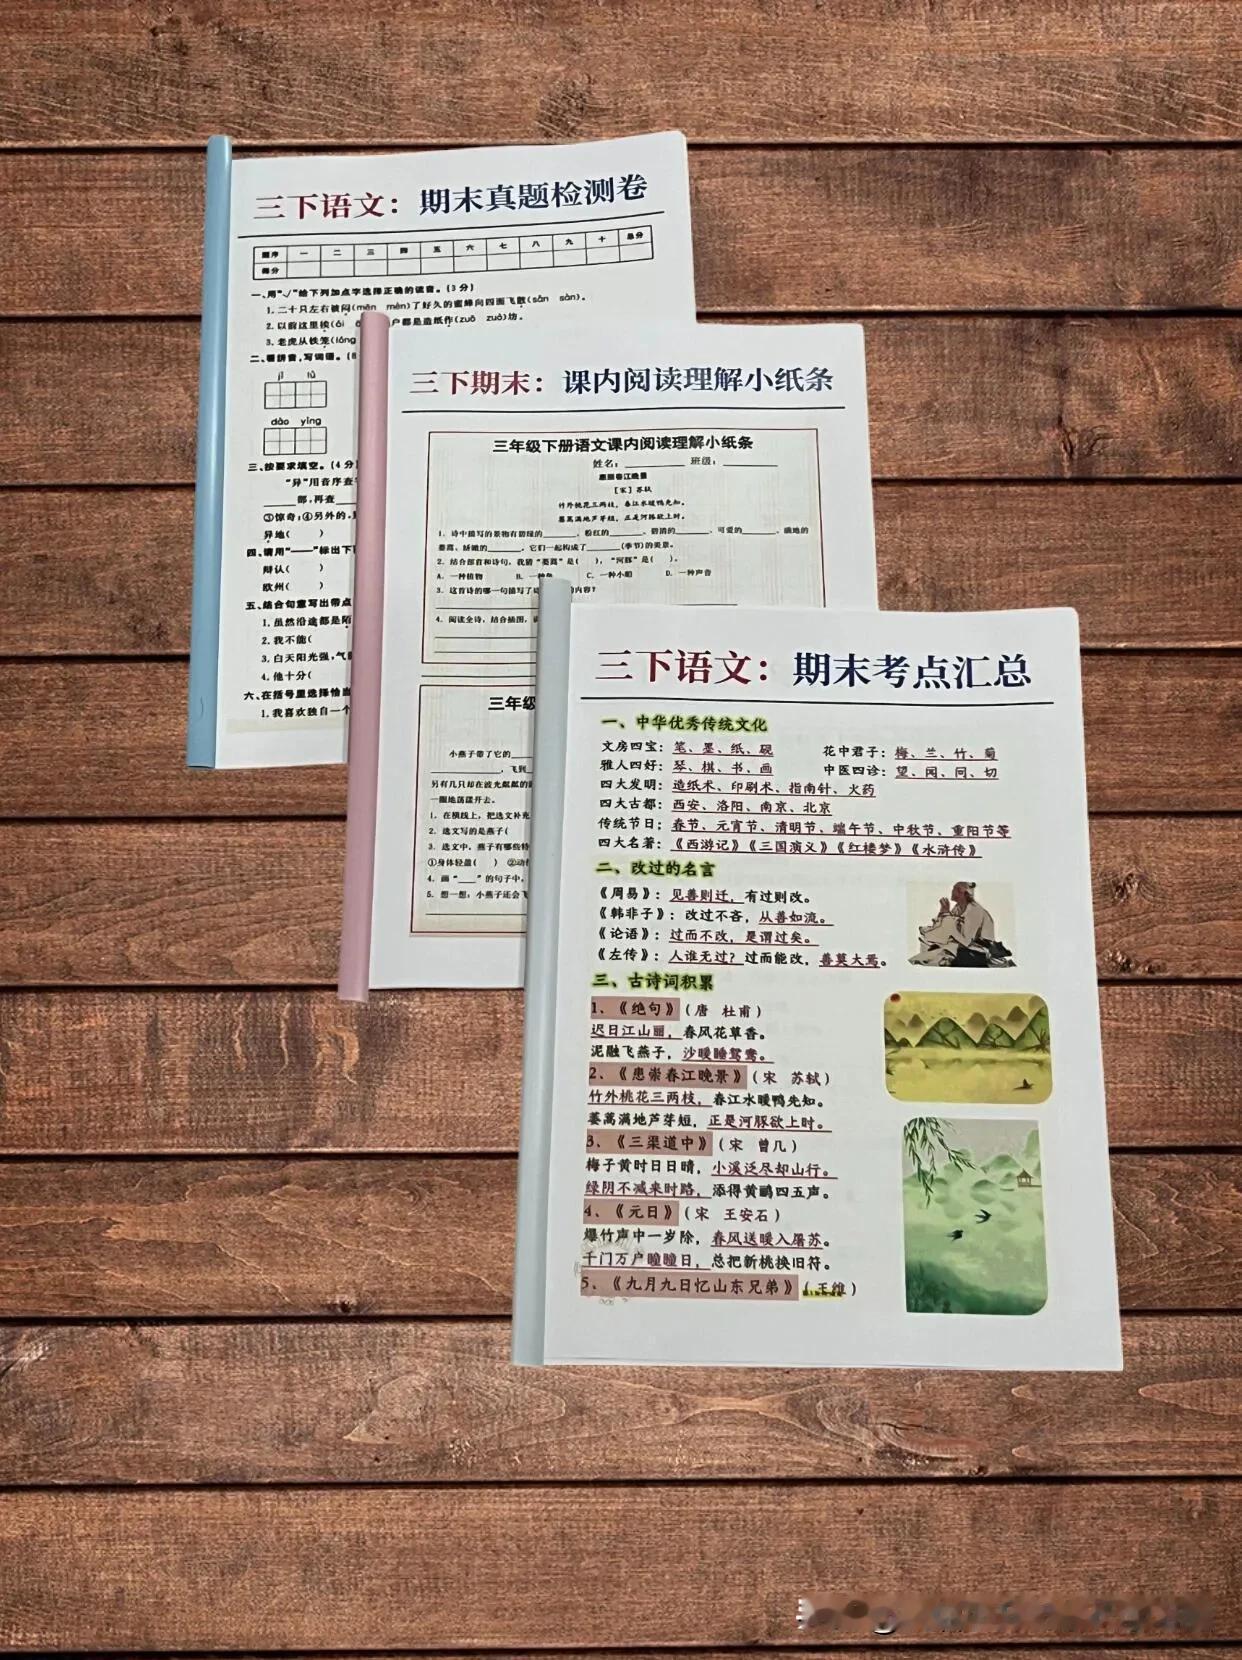 三下语文：期末真题检测卷
题序 一 二 三 四 五 六 七 八 九 十 总分
得分
一、用“√”给下列加点字选择正确的读音。(3分)
1.二十只左右被闷(mēn mèn)了好久的蜜蜂向四面飞散(sǎn sàn)。
2.以前这里挨(āi
户都是造纸作(zuō zuò)坊。
3.老虎从铁笼(lóng
二、看拼音，写词语。(8
jī lǜ
dào yǐng
三、按要求填空。(4分
“异”用音序查字
部，再查
③惊奇；④另外的，
异地( )
四、请用“——”标出下
辩认( )
欧州( )
五、结合句意写出带点
1.虽然沿途都是陌
2.我不能(
3.白天阳光强，气
4.他十分(
六、在括号里选择恰当
1.我喜欢独自一个
三下期末：课内阅读理解小纸条
三年级下册语文课内阅读理解小纸条
姓名：________ 班级：________
惠崇春江晚景
［宋］苏轼
竹外桃花三两枝，春江水暖鸭先知。
蒌蒿满地芦芽短，正是河豚欲上时。
1．诗中描写的景物有碧绿的______，粉红的______、碧清的______、可爱的______、满地的
蒌蒿、娇嫩的______，它们一起构成了______(季节)的美景。
2．结合部首和诗句，我猜“蒌蒿”是( )，“河豚”是( )。
A．一种植物 B．一种鱼 C．一种小船 D．一种声音
3．这首诗的哪一句描写了
的内容？
4．阅读全诗，结合插图，
三年级
小燕子带了它的
，飞到
另有几只却在波光粼粼的
一圈地荡漾开去。
1．在横线上，把选文补充
2．选文写的是燕子(
3．选文中，燕子有哪些特
①身体轻盈( ) ②动作
4．画“____”的句子中，
5．想一想：小燕子还会飞
三下语文：期末考点汇总
一、中华优秀传统文化
文房四宝：笔、墨、纸、砚 花中君子：梅、兰、竹、菊
雅人四好：琴、棋、书、画 中医四诊：望、闻、问、切
四大发明：造纸术、印刷术、指南针、火药
四大古都：西安、洛阳、南京、北京
传统节日：春节、元宵节、清明节、端午节、中秋节、重阳节等
四大名著：《西游记》《三国演义》《红楼梦》《水浒传》
二、改过的名言
《周易》：见善则迁，有过则改。
《韩非子》：改过不吝，从善如流。
《论语》：过而不改，是谓过矣。
《左传》：人谁无过？过而能改，善莫大焉。
三、古诗词积累
1、《绝句》（唐 杜甫）
迟日江山丽，春风花草香。
泥融飞燕子，沙暖睡鸳鸯。
2、《惠崇春江晚景》（宋 苏轼）
竹外桃花三两枝，春江水暖鸭先知。
蒌蒿满地芦芽短，正是河豚欲上时。
3、《三衢道中》（宋 曾几）
梅子黄时日日晴，小溪泛尽却山行。
绿阴不减来时路，添得黄鹂四五声。
4、《元日》（宋 王安石）
爆竹声中一岁除，春风送暖入屠苏。
千门万户曈曈日，总把新桃换旧符。
5、《九月九日忆山东兄弟》（王维）